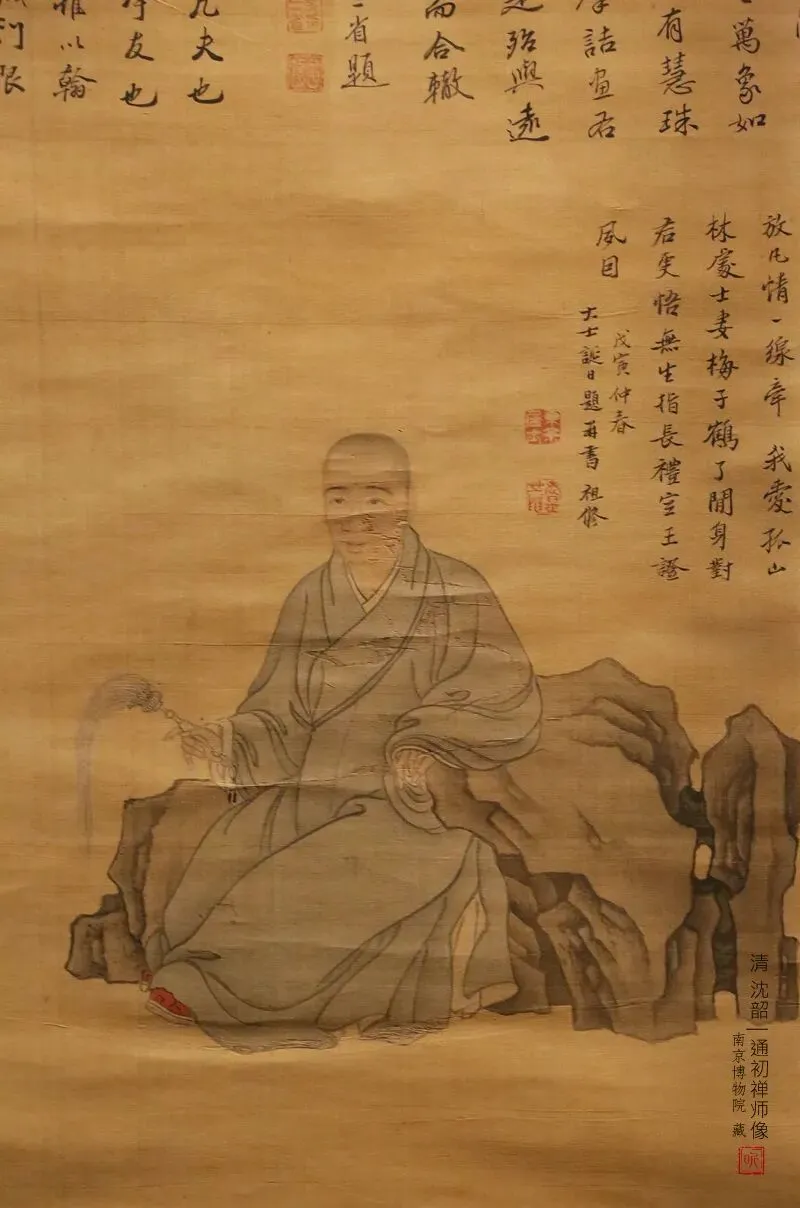 萬象如
有慧珠
詰畫右
殆與遠
而合轍
一省題
凡夫也
友也
惟以翰
門限
放凡情一線牽 我愛孤山
林處士妻梅子鶴了閒身對
君更悟無生指長禮空王證
夙因
戊寅仲春
大士誕日題并書 祖修
清 沈韶|通初禅师像
南京博物院 藏